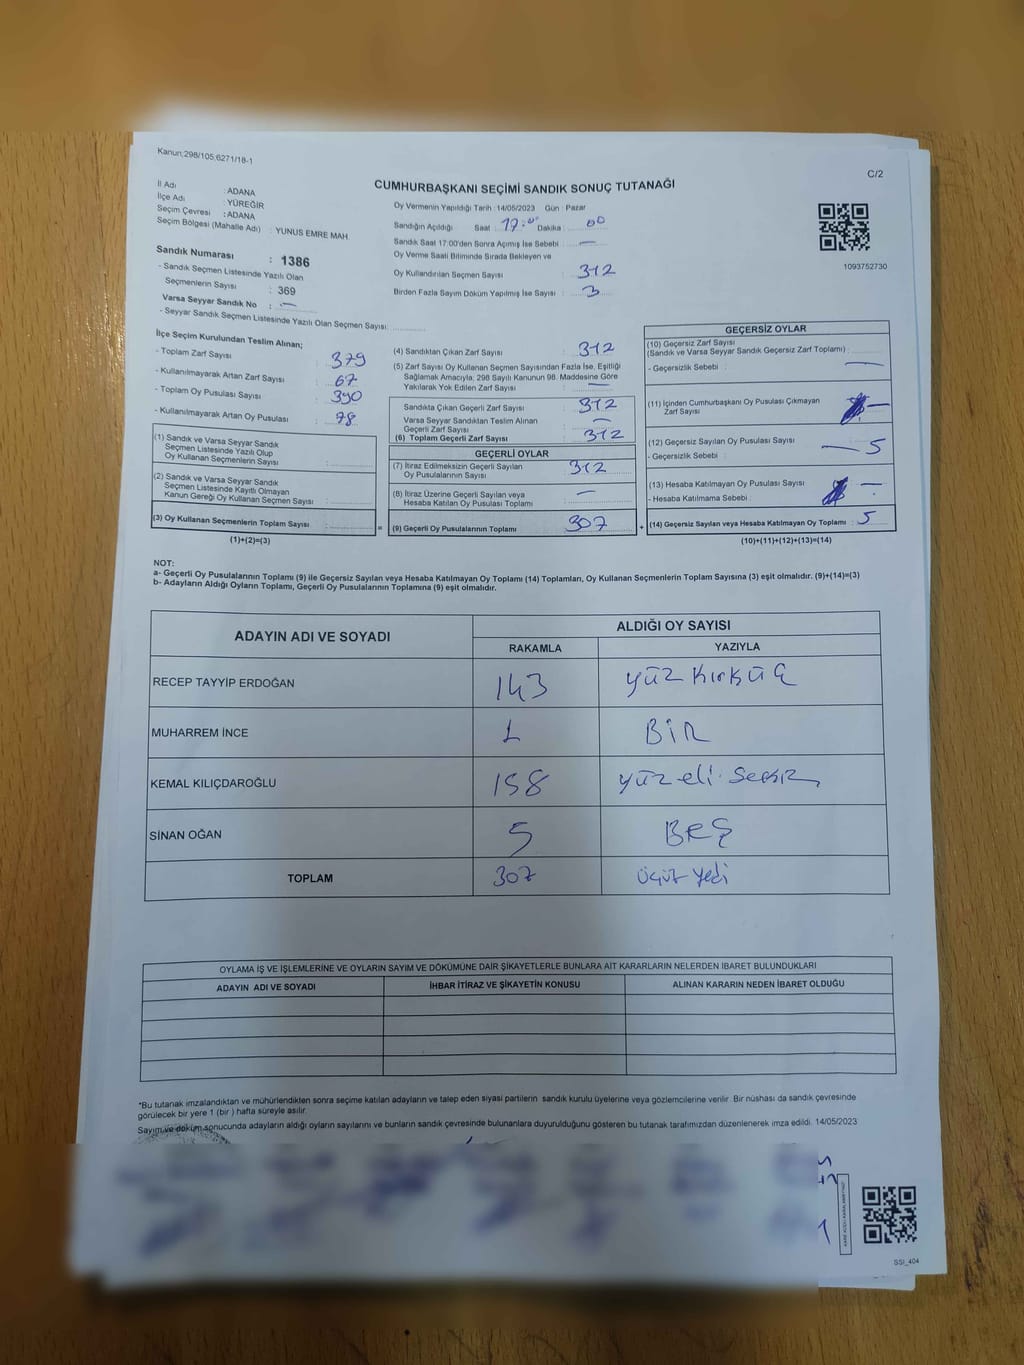 Kanun;298/105,6271/18-1
C/2
CUMHURBAŞKANI SEÇİMİ SANDIK SONUÇ TUTANAĞI
İl Adı : ADANA
İlçe Adı : YÜREĞİR
Seçim Çevresi : ADANA
Seçim Bölgesi (Mahalle Adı) : YUNUS EMRE MAH.
Sandık Numarası : 1386
- Sandık Seçmen Listesinde Yazılı Olan
Seçmenlerin Sayısı : 369
Varsa Seyyar Sandık No : —
- Seyyar Sandık Seçmen Listesinde Yazılı Olan Seçmen Sayısı:
Oy Vermenin Yapıldığı Tarih : 14/05/2023 Gün : Pazar
Sandığın Açıldığı Saat : 17:00 Dakika : 00
Sandık Saat 17:00'den Sonra Açımış İse Sebebi : —
Oy Verme Saati Bitiminde Sırada Bekleyen ve
Oy Kullandırılan Seçmen Sayısı : 312
Birden Fazla Sayım Döküm Yapılmış İse Sayısı : 3
1093752730
İlçe Seçim Kurulundan Teslim Alınan;
- Toplam Zarf Sayısı : 379
- Kullanılmayarak Artan Zarf Sayısı : 67
- Toplam Oy Pusulası Sayısı : 390
- Kullanılmayarak Artan Oy Pusulası : 78
(1) Sandık ve Varsa Seyyar Sandık
Seçmen Listesinde Yazılı Olup
Oy Kullanan Seçmenlerin Sayısı :
(2) Sandık ve Varsa Seyyar Sandık
Seçmen Listesinde Kayıtlı Olmayan
Kanun Gereği Oy Kullanan Seçmen Sayısı :
(3) Oy Kullanan Seçmenlerin Toplam Sayısı :
(1)+(2)=(3)
(4) Sandıktan Çıkan Zarf Sayısı : 312
(5) Zarf Sayısı Oy Kullanan Seçmen Sayısından Fazla İse, Eşitliği
Sağlamak Amacıyla; 298 Sayılı Kanunun 98. Maddesine Göre
Yakılarak Yok Edilen Zarf Sayısı : —
Sandıkta Çıkan Geçerli Zarf Sayısı : 312
Varsa Seyyar Sandıktan Teslim Alınan
Geçerli Zarf Sayısı : —
(6) Toplam Geçerli Zarf Sayısı : 312
GEÇERLİ OYLAR
(7) İtiraz Edilmeksizin Geçerli Sayılan
Oy Pusulalarının Sayısı : 312
(8) İtiraz Üzerine Geçerli Sayılan veya
Hesaba Katılan Oy Pusulası Toplamı : —
= (9) Geçerli Oy Pusulalarının Toplamı : 307 +
GEÇERSİZ OYLAR
(10) Geçersiz Zarf Sayısı
(Sandık ve Varsa Seyyar Sandık Geçersiz Zarf Toplamı) :
- Geçersizlik Sebebi : —
(11) İçinden Cumhurbaşkanı Oy Pusulası Çıkmayan
Zarf Sayısı : —
(12) Geçersiz Sayılan Oy Pusulası Sayısı : — 5
- Geçersizlik Sebebi :
(13) Hesaba Katılmayan Oy Pusulası Sayısı : —
- Hesaba Katılmama Sebebi :
(14) Geçersiz Sayılan veya Hesaba Katılmayan Oy Toplamı : 5
(10)+(11)+(12)+(13)=(14)
NOT:
a- Geçerli Oy Pusulalarının Toplamı (9) ile Geçersiz Sayılan veya Hesaba Katılmayan Oy Toplamı (14) Toplamları, Oy Kullanan Seçmenlerin Toplam Sayısına (3) eşit olmalıdır. (9)+(14)=(3)
b- Adayların Aldığı Oyların Toplamı, Geçerli Oy Pusulalarının Toplamına (9) eşit olmalıdır.
ADAYIN ADI VE SOYADI
ALDIĞI OY SAYISI
RAKAMLA YAZIYLA
RECEP TAYYİP ERDOĞAN 143 yüz kırküç
MUHARREM İNCE 1 BİR
KEMAL KILIÇDAROĞLU 158 yüz eli sekiz
SİNAN OĞAN 5 BEŞ
TOPLAM 307 üçüz yedi
OYLAMA İŞ VE İŞLEMLERİNE VE OYLARIN SAYIM VE DÖKÜMÜNE DAİR ŞİKAYETLERLE BUNLARA AİT KARARLARIN NELERDEN İBARET BULUNDUKLARI
ADAYIN ADI VE SOYADI İHBAR İTİRAZ VE ŞİKAYETİN KONUSU ALINAN KARARIN NEDEN İBARET OLDUĞU
*Bu tutanak imzalandıktan ve mühürlendikten sonra seçime katılan adayların ve talep eden siyasi partilerin sandık kurulu üyelerine veya gözlemcilerine verilir. Bir nüshası da sandık çevresinde
görülecek bir yere 1 (bir ) hafta süreyle asılır.
Sayım ve döküm sonucunda adayların aldığı oyların sayılarını ve bunların sandık çevresinde bulunanlara duyurulduğunu gösteren bu tutanak tarafımızdan düzenlenerek imza edildi. 14/05/2023
SSİ_404